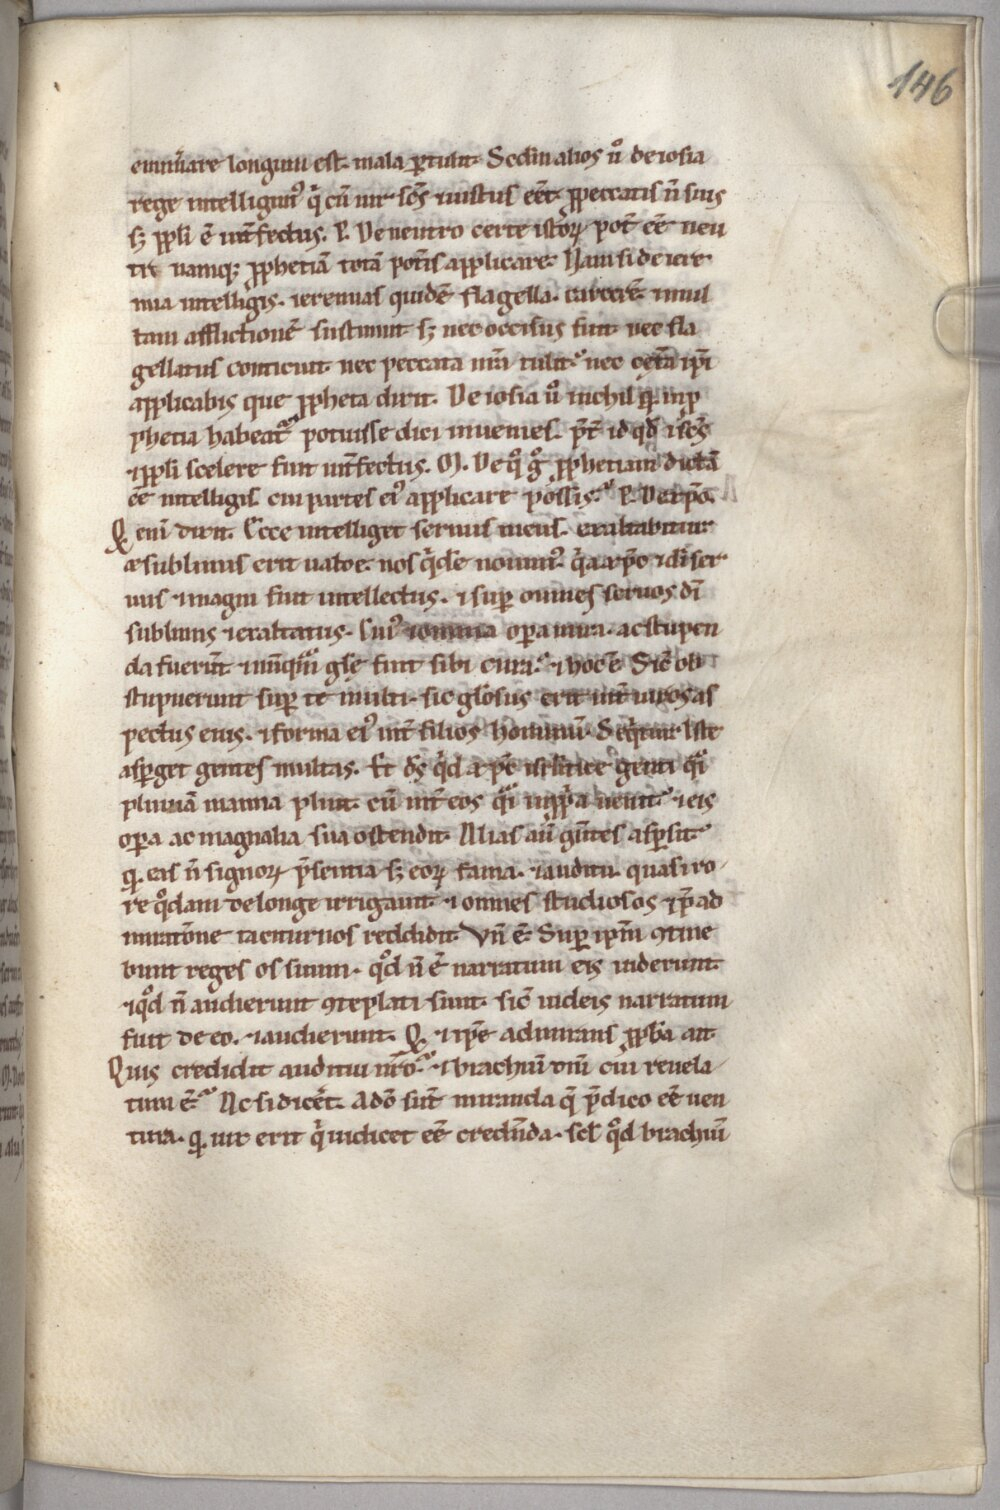 146
enum̄are longum est. mala ptulit. Sed in alios ů de iosia
rege intelligunt᷒ q̇ cū uir scs̄ ⁊ iustus eēt. ꝓ peccatis n̄ suis
sꝫ ppli ē int̄fectus. P. De neutro certe istoꝝ pot̄ eē neu
tri namqꝫ ꝓphetiā totā pot̄is applicare. Nam si de iere
mia intelligis. ieremias quidē flagella. carcerē. ⁊ mul
tam afflictionē sustinuit sꝫ nec occisus fuit nec fla
gellatus conticuit. nec peccata nr̄a tulit. nec cet̄a ipi
applicabis que ꝓpheta dixit. De iosia ů nichil qꝫ in ꝓ
phetia habeat᷒ potuisse dici inuenies. p̄t̄ id qd̄ ⁊ scs̄
⁊ ppli scelere fuit int̄fectus. M. De q̊ g̊ ꝓphetiam dictā
eē intelligis cui partes ei᷒ applicare possis. P. De xp̄o.
Q eni dixit. Ecce intelliget seruus meus. exaltabitur
⁊ sublimis erit ualde. nos q̇de nouim᷒ q̇a xp̄c ⁊ di ser
uus ⁊ magni fuit intellectus. ⁊ sup omnes seruos di
sublimis ⁊ exaltatus. Sui᷒ ⁊ omnia opa mira. ac stupen
da fuerūt ⁊ nūqm̄ gle fuit sibi cura. ⁊ hoc ē. Sic̄ ob
stupuerunt sup te multi. sic gl̄osus erit int̄ uiros as
pectus eius. ⁊ forma ei᷒ int̄ filios hominū. Seq̇tur. Iste
asp̱get gentes multas. Et ds̄ q̇d a xp̄c isrl̄itice genti q̊i
pluuiā manna pluit. cū int̄ eos q̊i in pp̄a uenit. ⁊ eis
opa ac magnalia sua ostendit. Alias aū gn̄tes asp̱sit
qꝫ eas n̄ signoꝝ p̄sentia sꝫ eoꝝ fama. ⁊ auditu quasi ro
re q̊dam de longe irrigauit. ⁊ omnes studiosos ⁊ p̄ ad
miratōne taciturnos reddidit. Vn̄ ē. Sup ip̄m ꝯtine
bunt reges os suum. q̊d n̄ ē narratum eis uiderunt.
⁊ q̊d n̄ audierunt ꝯteplati sunt. sic̄ iudeis narratum
fuit de eo. ⁊ audierunt. Q ⁊ ip̄e admirans ꝓph̄a ait.
Quis credidit auditui nr̄o. ⁊ brachiū dn̄i cui reuela
tum ē. Ac si dicēt. Adō sūt miranda q̄ p̄dico eē uen
tura. qꝫ uix erit q̇ iudicet eē credn̄da. scl̄ q̊d brachiū